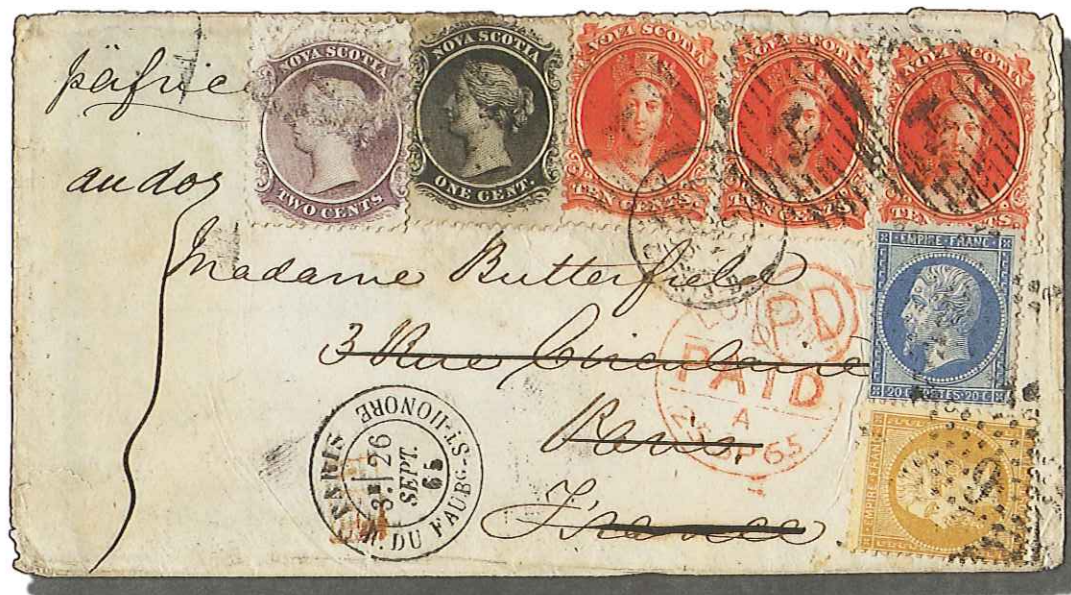 NOVA SCOTIA
TWO CENTS
NOVA SCOTIA
ONE CENT.
NOVA SCOTIA
TEN CENTS.
NOVA SCOTIA
TEN CENTS
NOVA SCOTIA
TEN CENTS
au dos
Madame Butterfield
3 Rue Circulaire
Paris.
France
EMPIRE FRANC
20 C POSTES 20 C
EMPIRE FRANC
PD
PAID
A
65
PARIS
3E 26
SEPT.
65
R. DU FAUBG-ST-HONORE